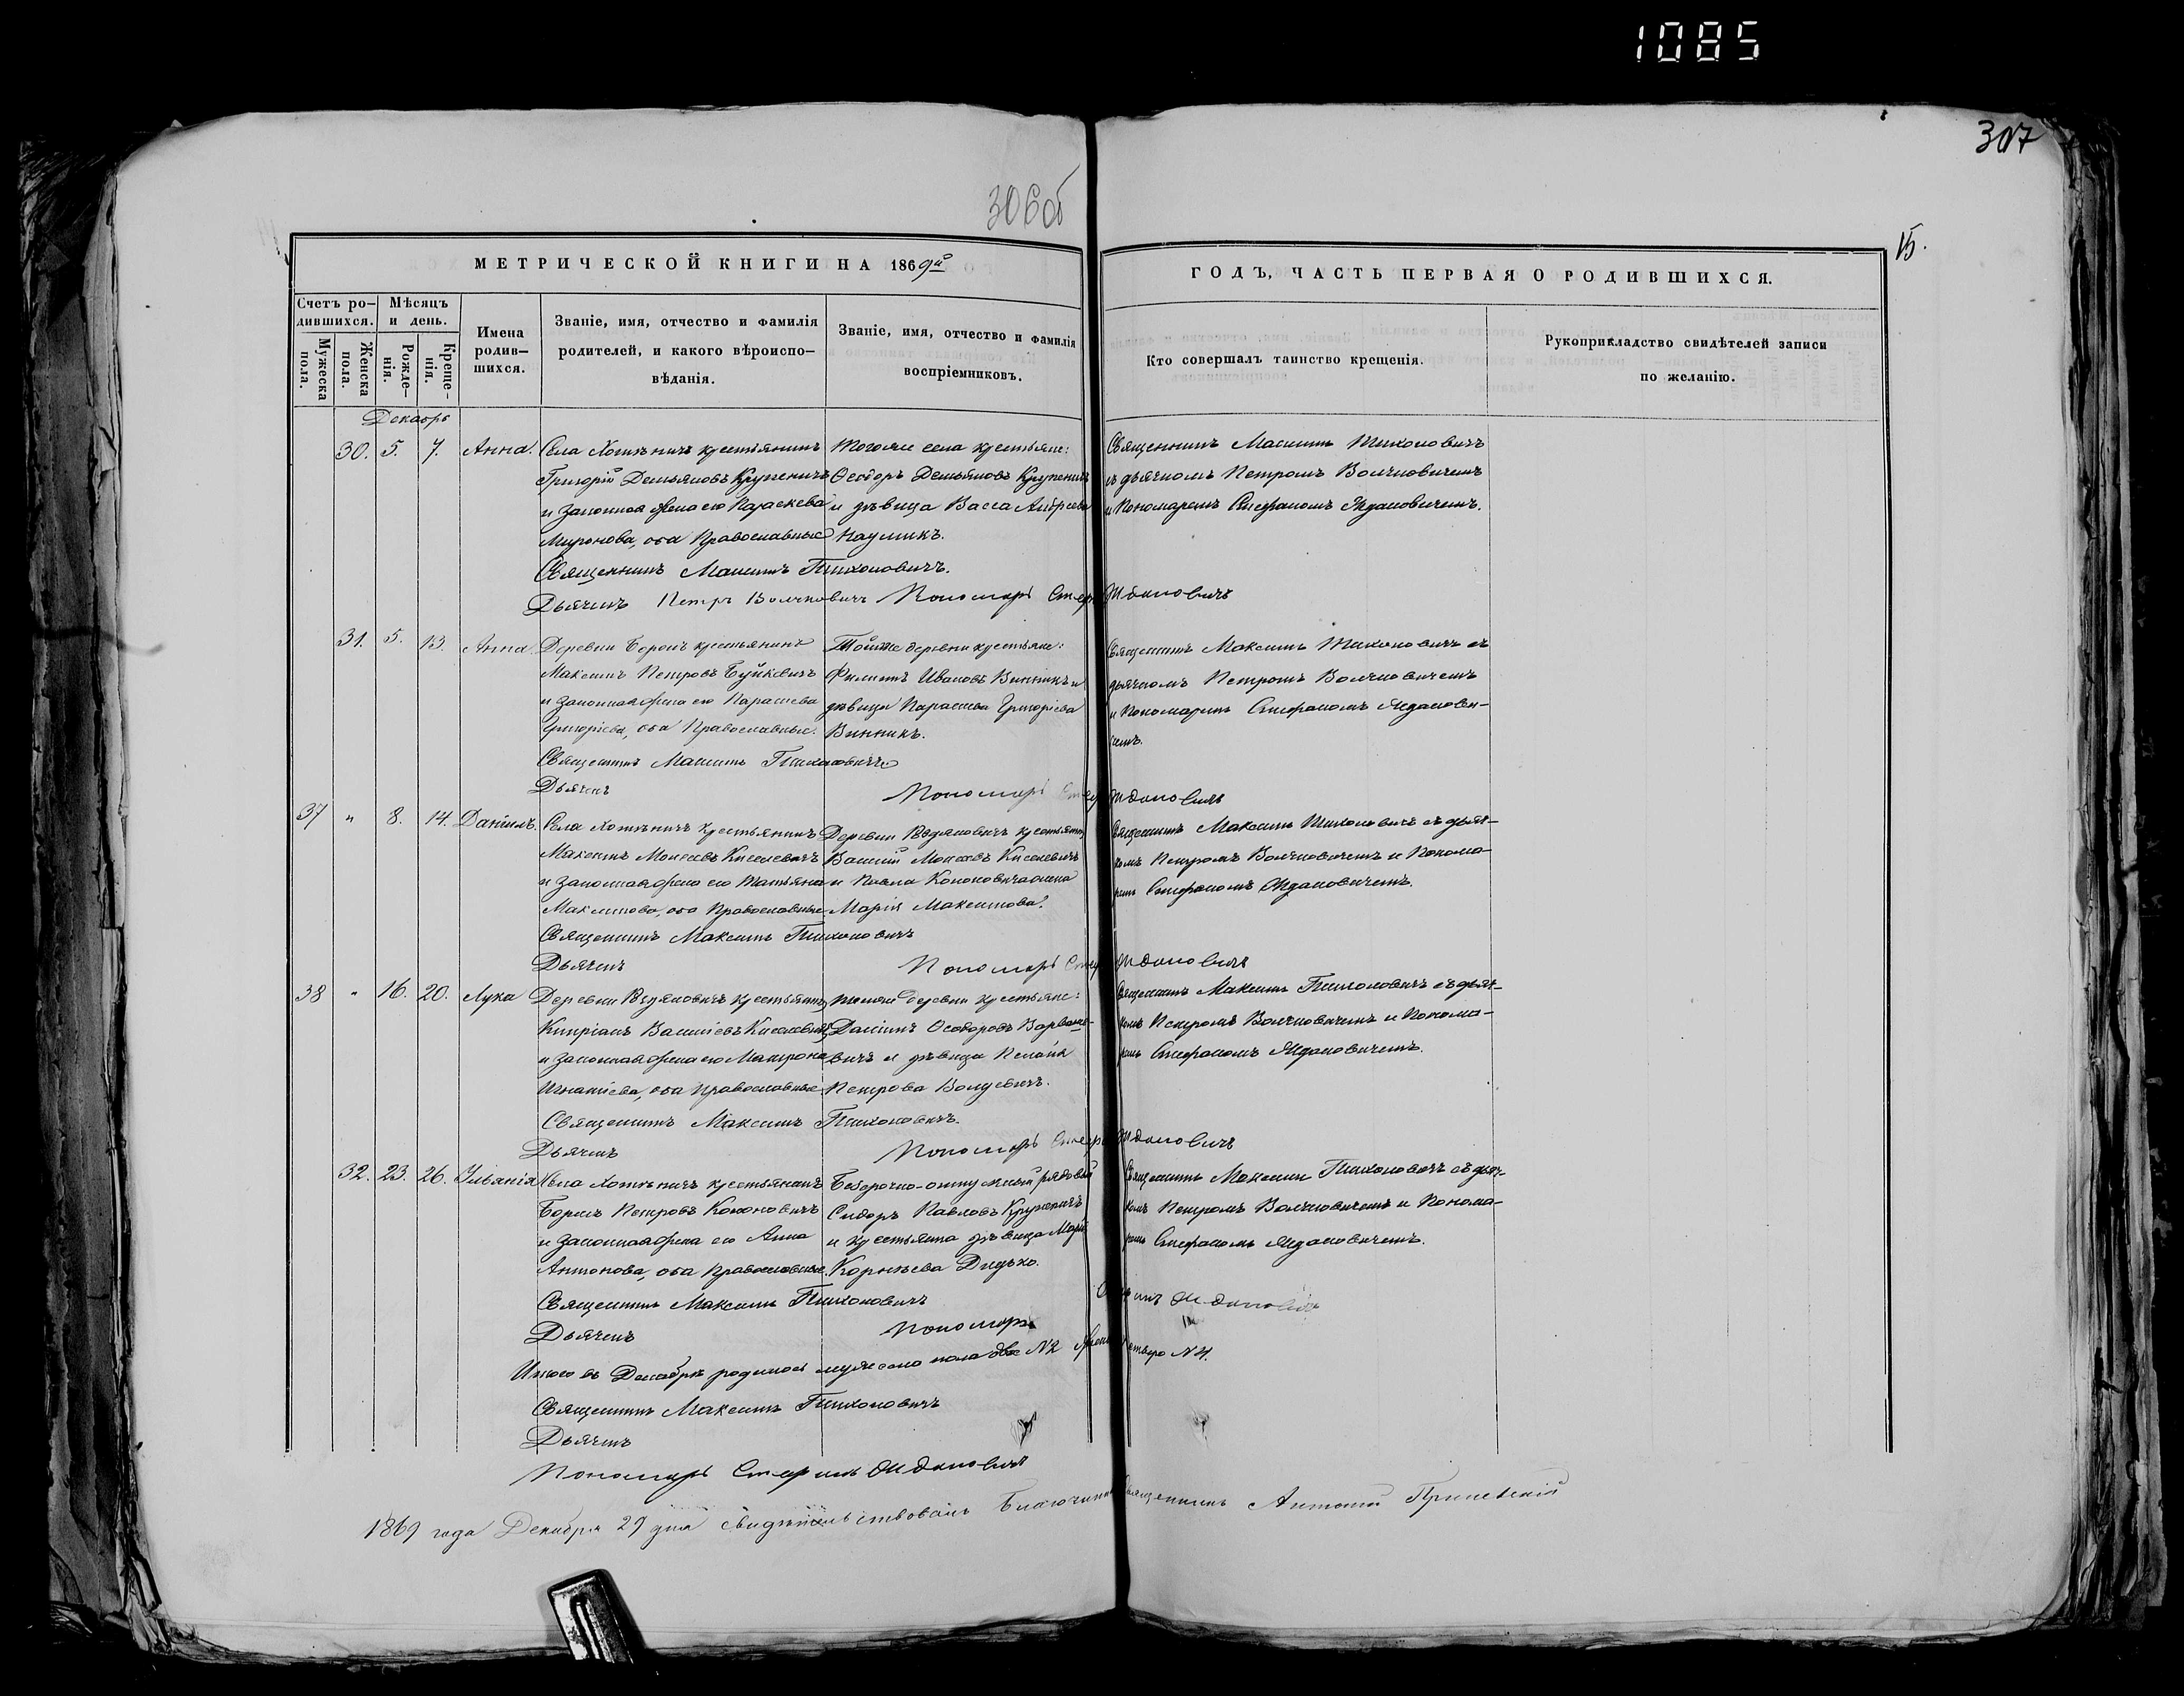 1085
307
306об
15.
МЕТРИЧЕСКОЙ КНИГИ НА 1869й
ГОДЪ, ЧАСТЬ ПЕРВАЯ О РОДИВШИХСЯ.
Счетъ ро-
дившихся.
Мѣсяцъ
и день.
Мужеска
пола.
Женска
пола.
Рожде-
нія.
Креще-
нія.
Имена
родив-
шихся.
Званіе, имя, отчество и фамилія
родителей, и какого вѣроиспо-
вѣданія.
Званіе, имя, отчество и фамилія
воспріемниковъ.
Кто совершалъ таинство крещенія.
Рукоприкладство свидѣтелей записи
по желанію.
Декабрь
30. 5. 7. Анна.
Села Хотѣничъ крестьянинъ
Григорій Демьяновъ Круженичъ
и законная жена его Параскева
Миронова, оба Православные
Тогоже села крестьяне:
Ѳеодоръ Демьяновъ Круженичъ
и дѣвица Васса Андреева
Наумикъ.
Священникъ Максимъ Тихоновичъ
съ дьячкомъ Петромъ Волчковичемъ
и Пономаремъ Стефаномъ Ждановичемъ.
Священникъ Максимъ Тихоновичъ.
Дьячекъ Петръ Волчковичъ Пономарь Стеф Ждановичъ
31. 5. 13. Анна
Деревни крестьянинъ
Максимъ Петровъ Буйкевичъ
и законная жена его Парасева
Григоріева, оба Православные.
Тойже деревни крестьяне:
Филиппъ Ивановъ Винникъ и
дѣвица Парасева Григоріева
Винникъ.
Священникъ Максимъ Тихоновичъ съ
дьячкомъ Петромъ Волчковичемъ
и Пономаремъ Стефаномъ Жданови-
чемъ.
Священникъ Максимъ Тихоновичъ
Дьячекъ
Пономарь Стеф Ждановичъ
37 " 8. 14. Даніилъ.
Села Хотѣничъ крестьянинъ
Максимъ Моисеевъ Киселевичъ
и законная жена его Татьяна
Максимова, оба Православные
Деревни крестьяне
Василій Моисеевъ Киселевичъ
и Павла Кононовича жена
Марія Максимова.
Священникъ Максимъ Тихоновичъ съ дьяч-
комъ Петромъ Волчковичемъ и Понома-
ремъ Стефаномъ Ждановичемъ.
Священникъ Максимъ Тихоновичъ
Дьячекъ
Пономарь Стеф Ждановичъ
38 " 16. 20. Лука
Деревни крестьянинъ
Кипріанъ Василіевъ Киселевичъ
и законная жена его Матрона
Игнатіева, оба Православные.
тойже деревни крестьяне:
Даніилъ Ѳеодоровъ Варване-
вичъ и дѣвица Пелагія
Петрова
Священникъ Максимъ Тихоновичъ съ дьяч-
комъ Петромъ Волчковичемъ и Понома-
ремъ Стефаномъ Ждановичемъ.
Священникъ Максимъ Тихоновичъ.
Дьячекъ
Пономарь Стеф Ждановичъ
32. 23. 26. Іуліанія
Села Хотѣничъ крестьянинъ
Борисъ Петровъ Кононовичъ
и законная жена его Анна
Антонова, оба Православные.
Безсрочно-отпускный рядовый
Сидоръ Павловъ Круженичъ
и крестьянка дѣвица Марія
Корнѣева Дидько.
Священникъ Максимъ Тихоновичъ съ дьяч-
комъ Петромъ Волчковичемъ и Понома-
ремъ Стефаномъ Ждановичемъ.
Священникъ Максимъ Тихоновичъ
Дьячекъ
Пономарь Стефанъ Ждановичъ
Итого въ Декабрѣ родилось мужеско пола два № 2 женс четыре № 4.
Священникъ Максимъ Тихоновичъ
Дьячекъ
Пономарь Стефанъ Ждановичъ
1869 года Декабря 29 дня свидѣтельствовалъ Благочинный Священникъ Антоній